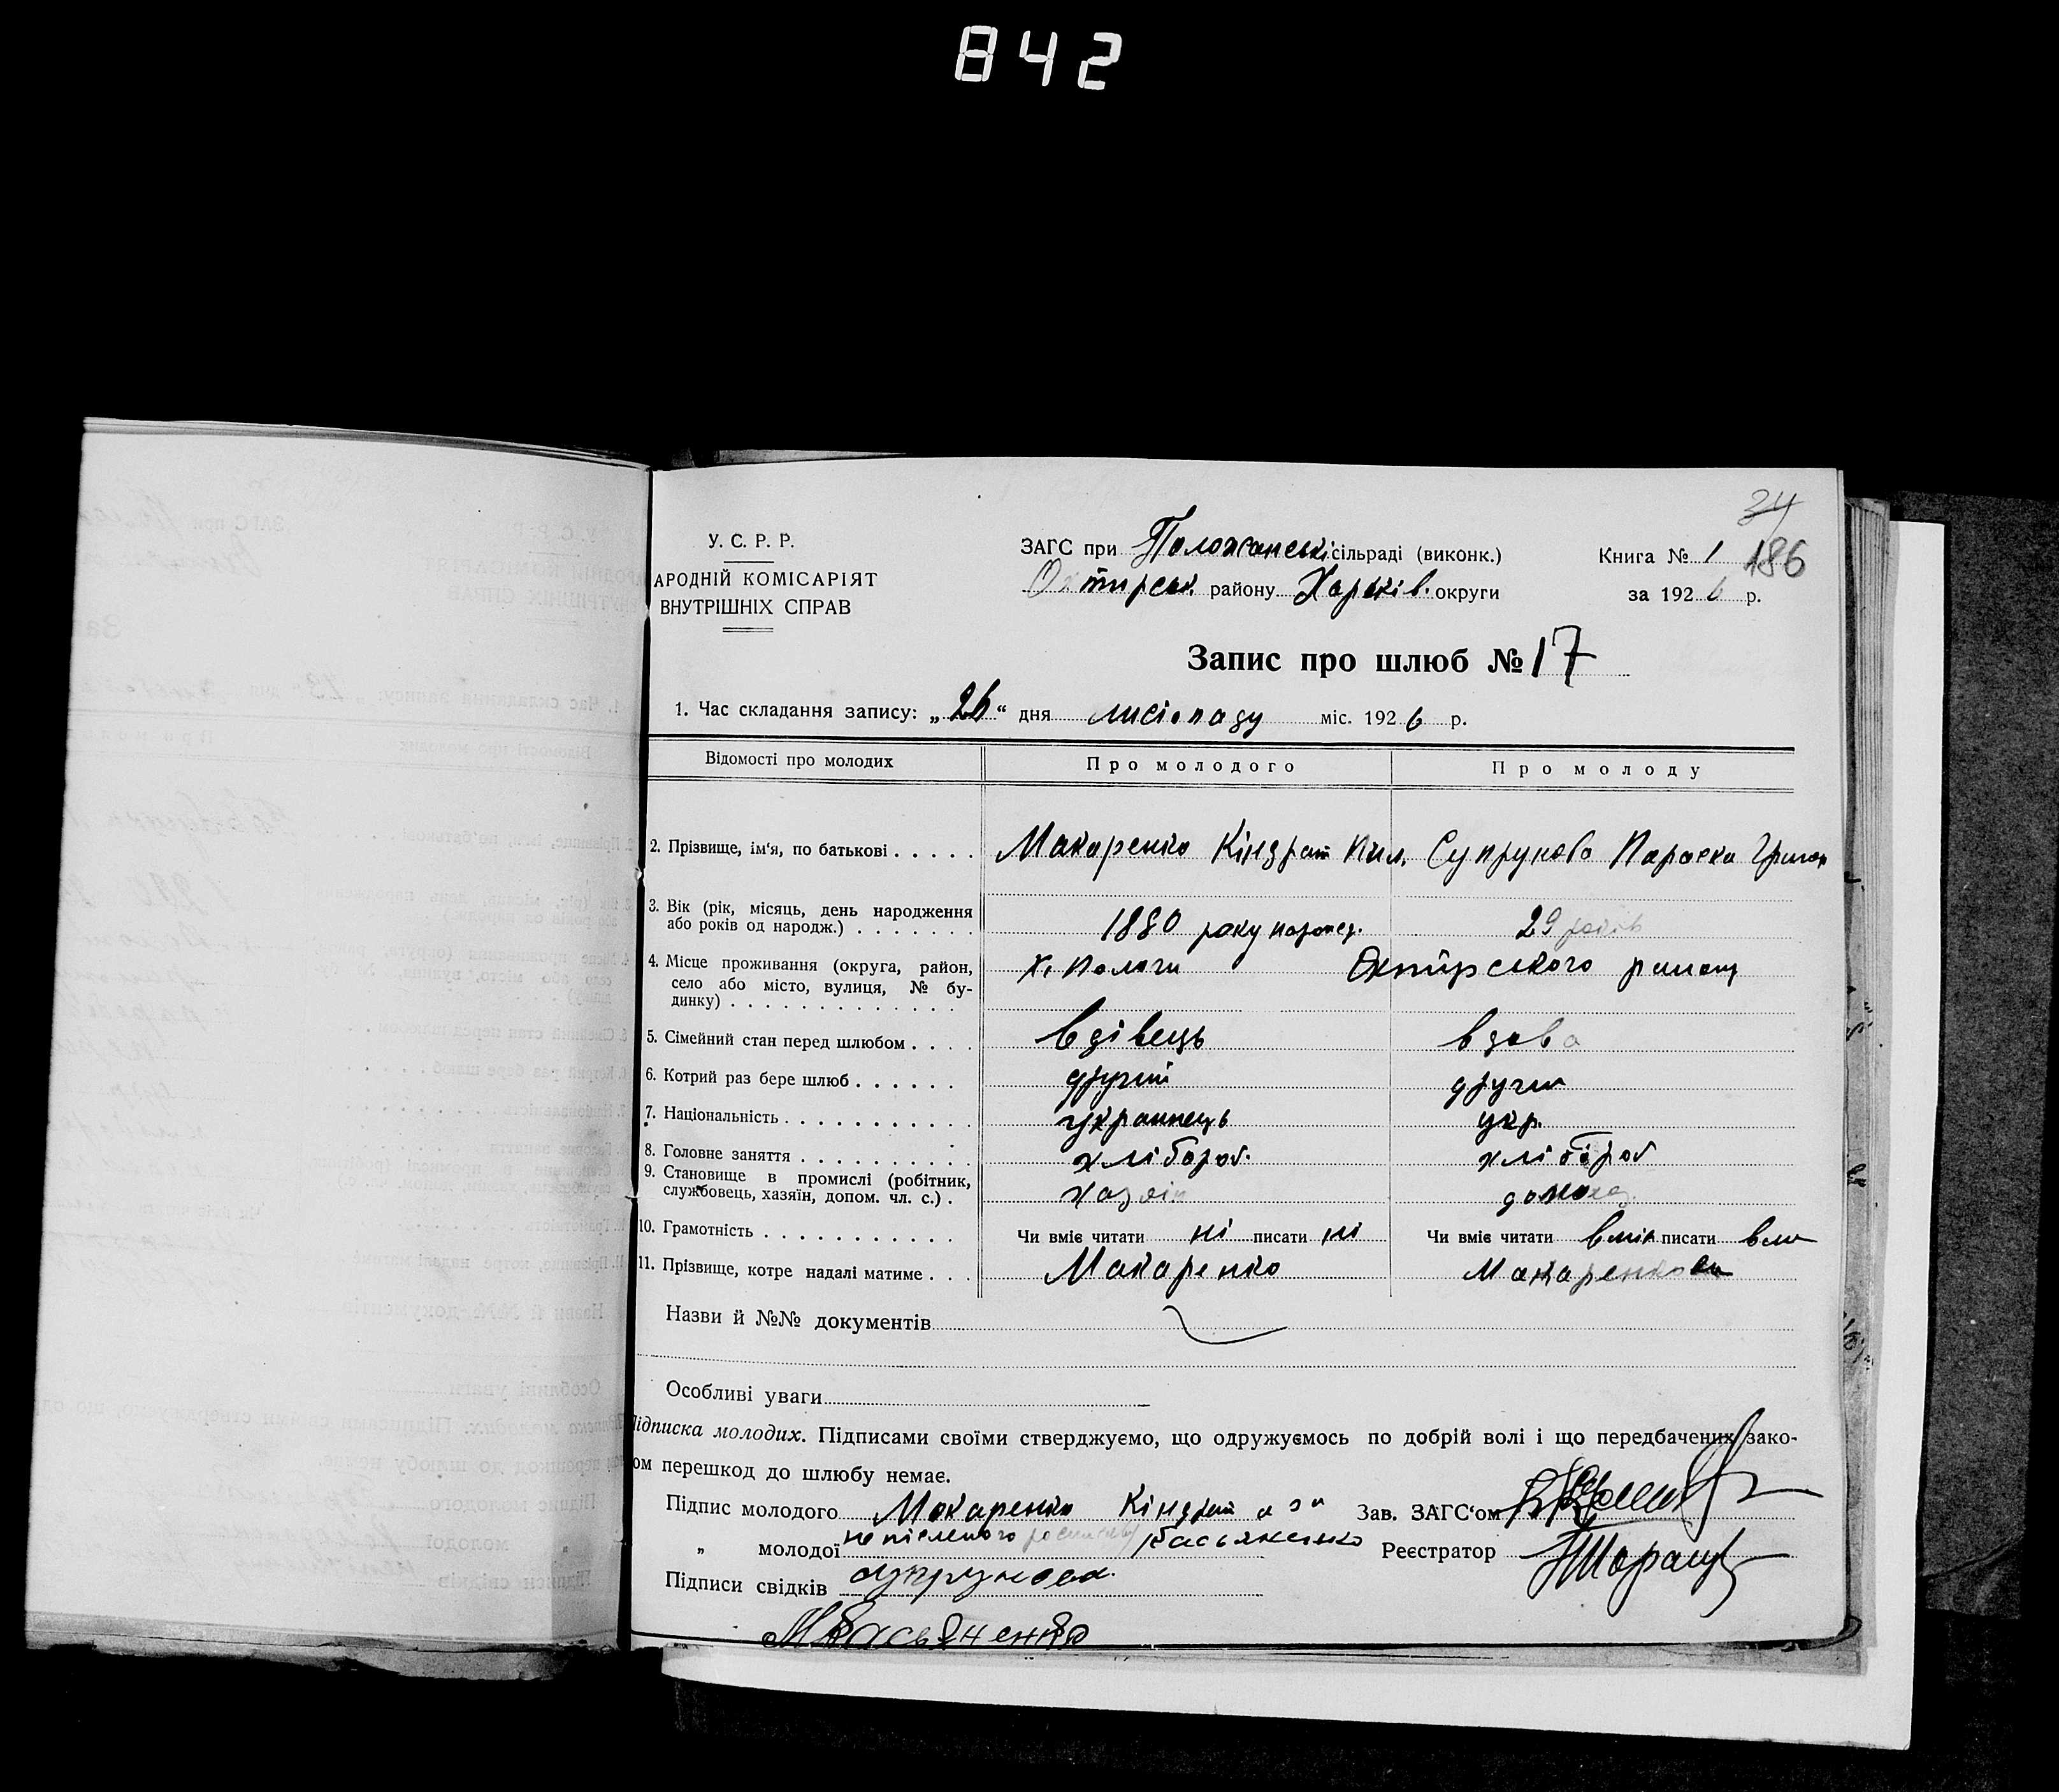 842
34
У. С. Р. Р.
АРОДНІЙ КОМІСАРІЯТ
ВНУТРІШНІХ СПРАВ
ЗАГС при Положанські сільраді (виконк.)
Охтирськ. району Харьків. округи
Книга № 1 186
за 1926 р.
Запис про шлюб № 17
1. Час складання запису: „26“ дня листопаду міс. 1926 р.
Відомості про молодих Про молодого Про молоду
2. Прізвище, ім‘я, по батькові . . . . . Макаренко Кіндрат Пил. Супрунова Параска Григор
3. Вік (рік, місяць, день народження
або років од народж.) . . . . . . . 1880 року народ. 29 років
4. Місце проживання (округа, район, х. Пологи Охтирського району
село або місто, вулиця, № бу-
динку) . . . . . . . . . . . . .
5. Сімейний стан перед шлюбом . . . . вдівець вдова
6. Котрий раз бере шлюб . . . . . . другий други
7. Національність . . . . . . . . . . . українець укр.
8. Головне заняття . . . . . . . . . . хлібороб. хлібороб
9. Становище в промислі (робітник,
службовець, хазяїн, допом. чл. с.) . хазяїн
10. Грамотність . . . . . . . . . . . Чи вміє читати ні писати ні Чи вміє читати вміє писати вміє
11. Прізвище, котре надалі матиме . . . Макаренко Макаренкова
Назви й №№ документів
Особливі уваги
ідписка молодих. Підписами своїми стверджуємо, що одружуємось по добрій волі і що передбачених зако-
ом перешкод до шлюбу немає.
Підпис молодого Макаренко Кіндрат а за Зав. ЗАГС‘ом
неписьменого росписався Касьяненко
„ молодої Реєстратор
Підписи свідків Супрунова
М Касьяненко